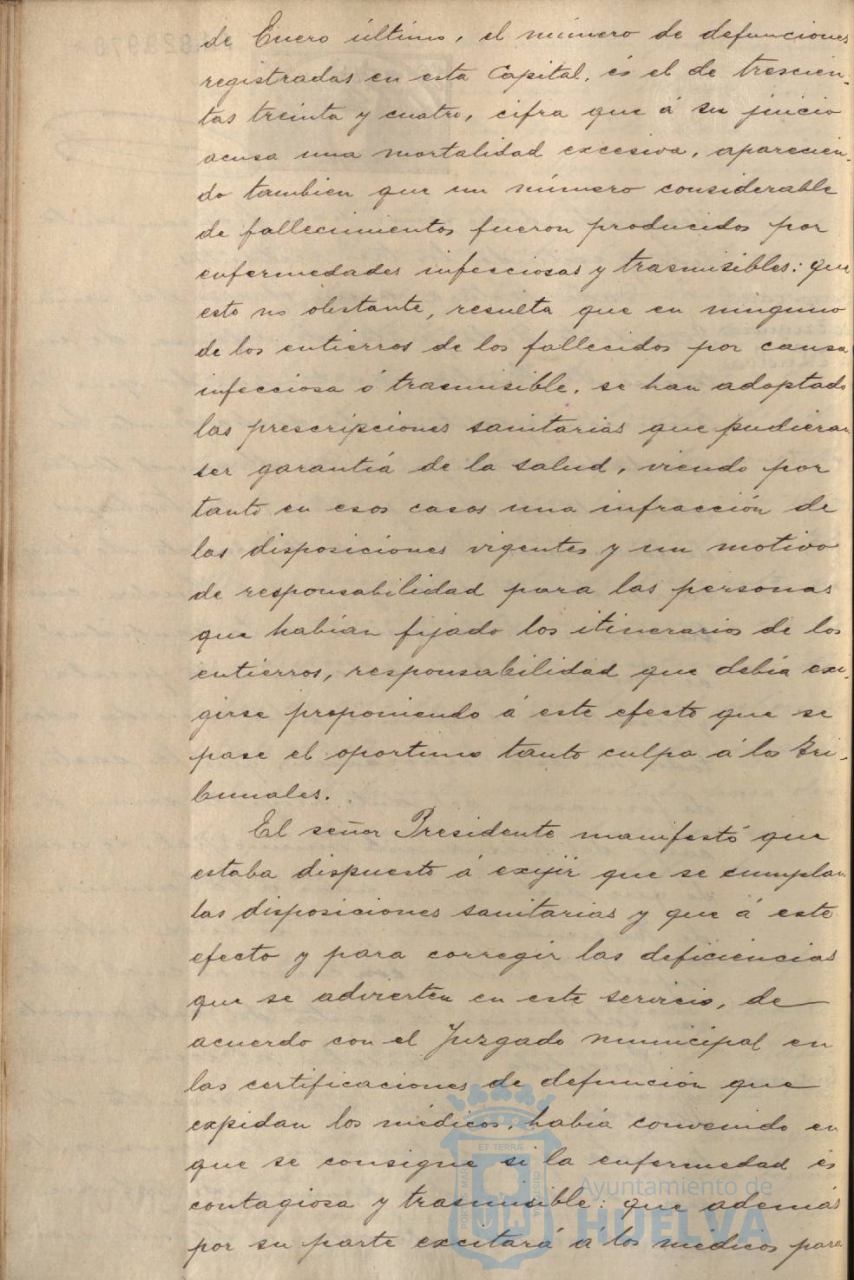 de Enero último, el número de defunciones
registradas en esta Capital, és el de trescien-
tas treinta y cuatro, cifra que á su juicio
acusa una mortalidad excesiva, aparecien-
do tambien que un número considerable
de fallecimientos fueron producidos por
enfermedades infecciosas y trasmisibles: que
esto no obstante, resulta que en ninguno
de los entierros de los fallecidos por causa
infecciosa ó trasmisible, se han adoptado
las prescripciones sanitarias que pudieran
ser garantiá de la salud, viendo por
tanto en esos casos una infracción de
las disposiciones vigentes y un motivo
de responsabilidad para las personas
que habian fijado los itinerarios de los
entierros, responsabilidad que debia exi-
girse proponiendo á este efecto que se
pase el oportuno tanto culpa á los Tri-
bunales.
El señor Presidente manifestó que
estaba dispuesto á exijir que se cumplan
las disposiciones sanitarias y que á este
efecto y para corregir las deficiencias
que se advierten en este servicio, de
acuerdo con el Juzgado municipal en
las certificaciones de defunción que
expidan los médicos, habia convenido en
que se consigne si la enfermedad és
contagiosa y trasmisible: que además
por su parte excitará á los medicos para
Ayuntamiento de
HUELVA